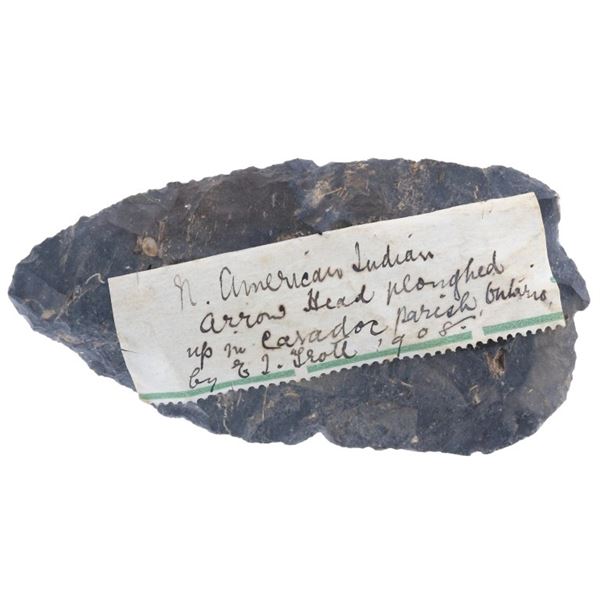 N. American Indian
Arrow Head ploughed
up in Caradoc parish, Ontario,
by E J. Troll, 1908.